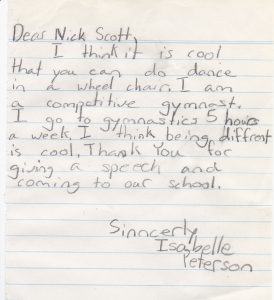 Dear Nick Scott,
I think it is cool
that you can do dance
in a wheel chair. I am
a competitive gymnast.
I go to gymnastics 5 hours
a week. I think being diffrent
is cool. Thank You for
giving a speech and
coming to our school.
Sinncerly,
Isabelle
Peterson